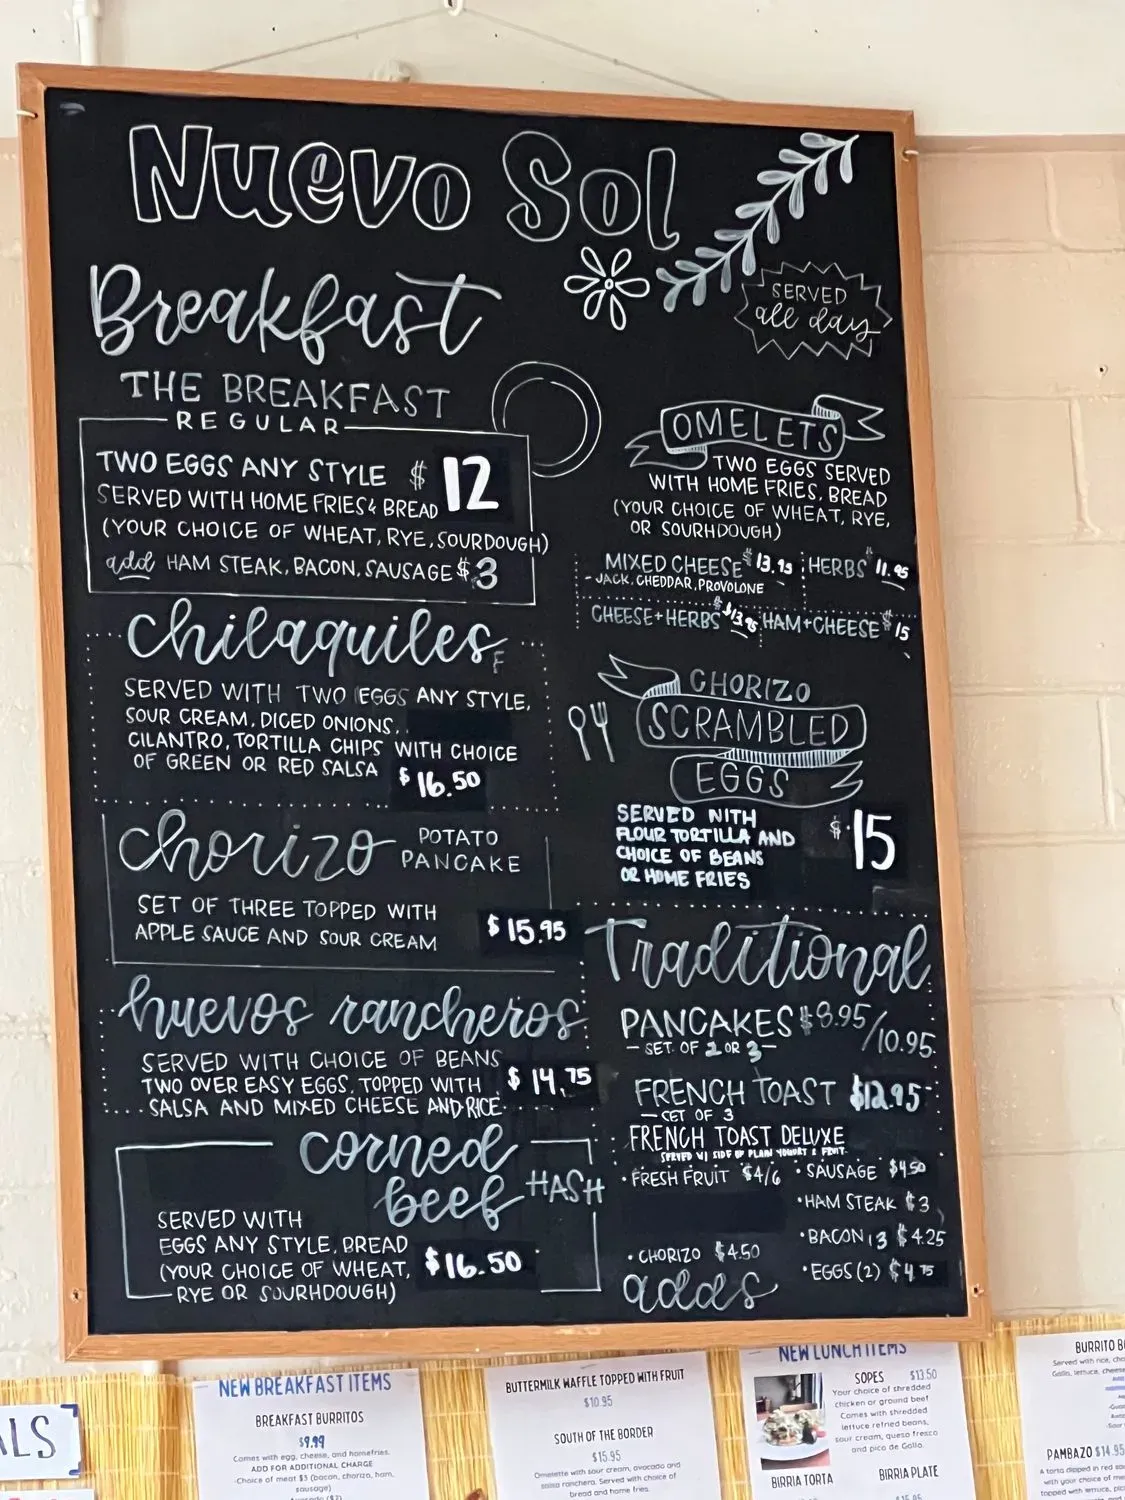 Nuevo Sol
Breakfast
SERVED
all day
THE BREAKFAST
REGULAR
TWO EGGS ANY STYLE $12
SERVED WITH HOME FRIES & BREAD
(YOUR CHOICE OF WHEAT, RYE, SOURDOUGH)
add HAM STEAK, BACON, SAUSAGE $3
chilaquiles
SERVED WITH TWO EGGS ANY STYLE,
SOUR CREAM, DICED ONIONS,
CILANTRO, TORTILLA CHIPS WITH CHOICE
OF GREEN OR RED SALSA
$16.50
chorizo POTATO
PANCAKE
SET OF THREE TOPPED WITH
APPLE SAUCE AND SOUR CREAM
$15.95
huevos rancheros
SERVED WITH CHOICE OF BEANS
TWO OVER EASY EGGS, TOPPED WITH
SALSA AND MIXED CHEESE AND RICE
$14.75
corned
beef HASH
SERVED WITH
EGGS ANY STYLE, BREAD
(YOUR CHOICE OF WHEAT,
RYE OR SOURHDOUGH)
$16.50
OMELETS
TWO EGGS SERVED
WITH HOME FRIES, BREAD
(YOUR CHOICE OF WHEAT, RYE,
OR SOURHDOUGH)
MIXED CHEESE $13.95 HERBS $11.95
- JACK, CHEDDAR, PROVOLONE
CHEESE+HERBS $13.95 HAM+CHEESE $15
CHORIZO
SCRAMBLED
EGGS
SERVED NITH
FLOUR TORTILLA AND
CHOICE OF BEANS
OR HOME FRIES
$15
Traditional
PANCAKES $8.95/10.95
- SET OF 2 OR 3 -
FRENCH TOAST $12.95
- SET OF 3
FRENCH TOAST DELUXE
SERVED W/ SIDE OF PLAIN YOGURT & FRUIT
• FRESH FRUIT $4/6
• SAUSAGE $4.50
• HAM STEAK $3
• BACON 3 $4.25
• CHORIZO $4.50
• EGGS (2) $4.75
adds
ALS
NEW BREAKFAST ITEMS
BREAKFAST BURRITOS
$9.99
Comes with egg, cheese, and homefries.
ADD FOR ADDITIONAL CHARGE
-Choice of meat $3 (bacon, chorizo, ham,
sausage)
BUTTERMILK WAFFLE TOPPED WITH FRUIT
$10.95
SOUTH OF THE BORDER
$15.95
Omelette with sour cream, avocado and
salsa ranchera. Served with choice of
bread and home fries.
NEW LUNCH ITEMS
SOPES $13.50
Your choice of shredded
chicken or ground beef
Comes with shredded
lettuce refried beans,
sour cream, queso fresco
and pico de Gallo.
BIRRIA TORTA
BIRRIA PLATE
BURRITO
Served with rice,
Gallo, lettuce,
PAMBAZO $14.95
A torta dipped in red
with your choice of
topped with lettuce,